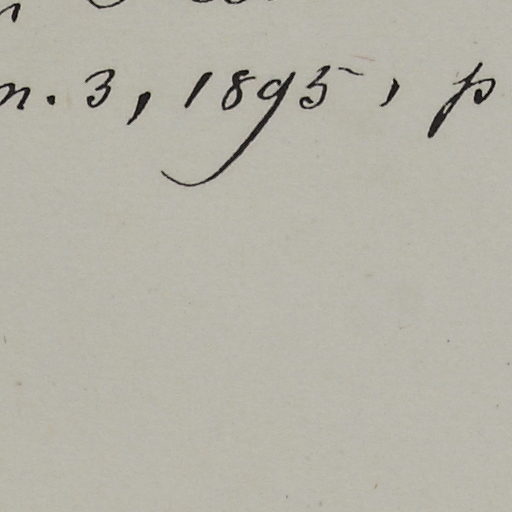 n. 3, 1895, p